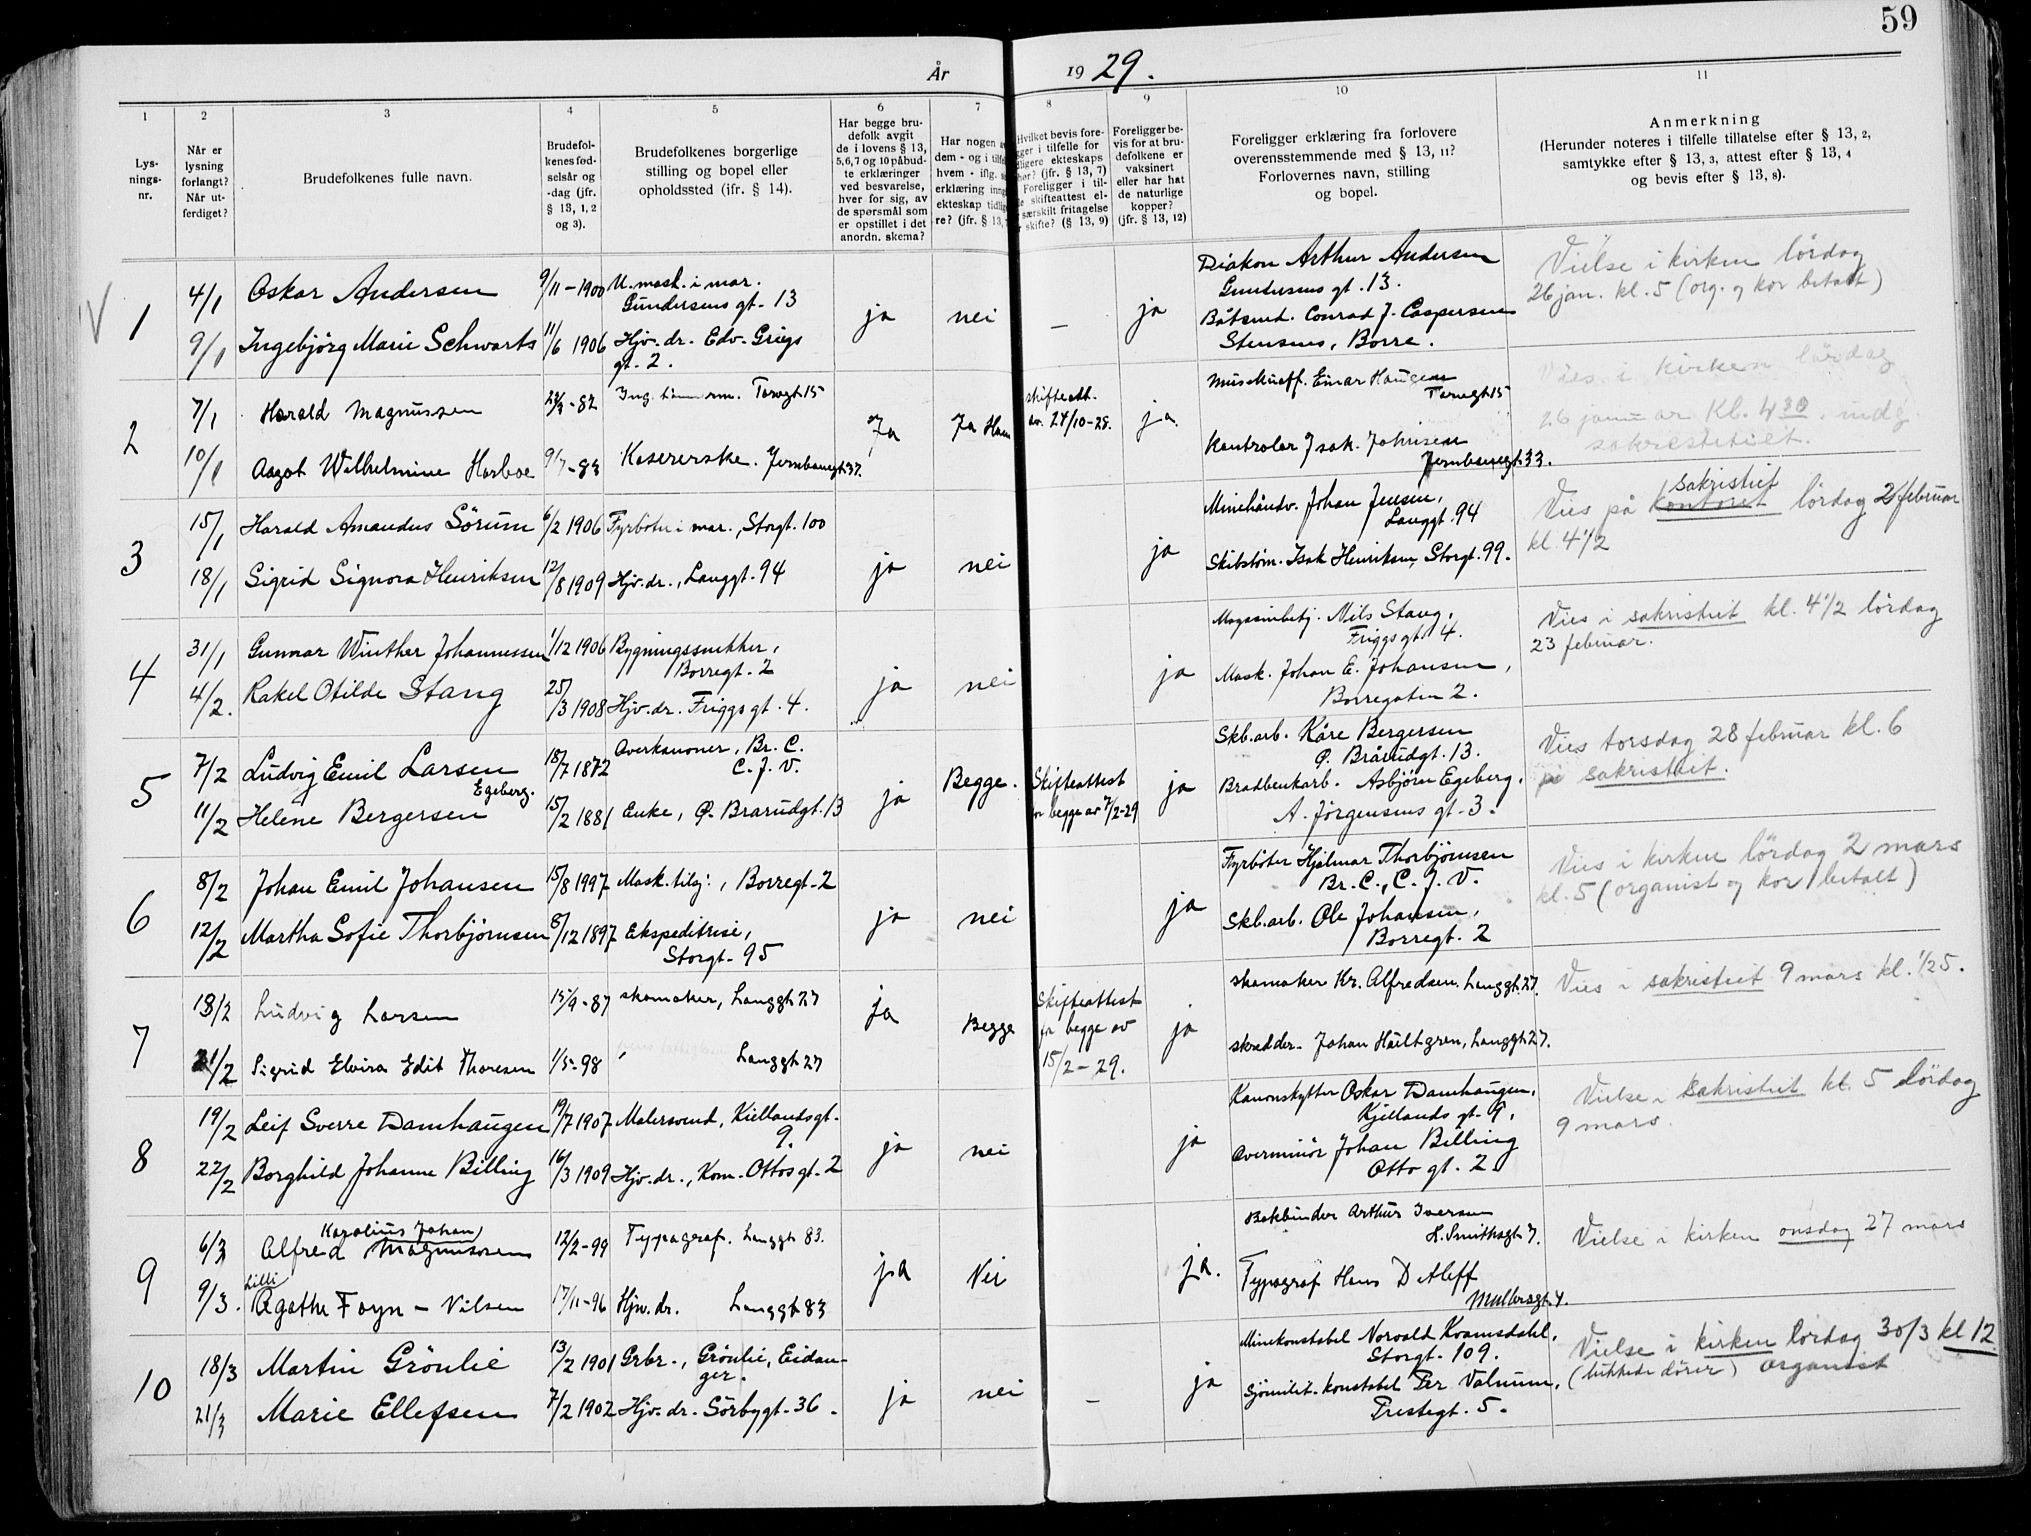 59
År 1929.
1 2 3 4 5 6 7 8 9 10 11
Lys-
nings-
nr.
Når er
lysning
forlangt?
Når ut-
ferdiget?
Brudefolkenes fulle navn.
Brudefol-
kenes fød-
selsår og
-dag (jfr.
§ 13, 1, 2
og 3).
Brudefolkenes borgerlige
stilling og bopel eller
opholdssted (jfr. § 14).
Har begge bru-
defolk avgit
de i lovens § 13,
5, 6, 7 og 10 påbud-
te erklæringer
ved besvarelse,
hver for sig, av
de spørsmål som
er opstillet i det
anordn. skema?
Har nogen
dem - og i
hvem - iflg.
erklæring
ekteskap
re? (jfr. § 13,
Hvilket bevis fore-
i tilfelle for
ekteskaps
(jfr. § 13, 7)
Foreligger i til-
skifteattest el-
særskilt fritagelse
skifte? (§ 13, 9)
Foreligger be-
vis for at bru-
defolkene er
vaksinert
eller har hat
de naturlige
kopper?
(jfr. § 13, 12)
Foreligger erklæring fra forlovere
overensstemmende med § 13, 11?
Forlovernes navn, stilling
og bopel.
Anmerkning
(Herunder noteres i tilfelle tillatelse efter § 13, 2,
samtykke efter § 13, 3, attest efter § 13, 4
og bevis efter § 13, 8).
V 1
4/1 Oskar Andersen 9/11-1900 U. mask. i mar.
Gundersens gt. 13
9/1 Ingebjörg Marie Schwartz 11/6 1906 Hjv. dr. Edv. Griegs
gt. 2.
ja nei — ja
Diakon Arthur Andersen
Gundersens gt. 13.
Båtsmd. Conrad J. Caspersen
Stensnes, Borre.
Vielse i kirken lördag
26 jan. kl. 5 (org. og kor betalt)
2
7/1 Harald Magnussen 82 Torvgt 15
10/1 Aagot Wilhelmine Harboe 9/7-83 Kasererske. Jernbanegt 37.
Ja Ja Ham skifteatt.
av. 24/10-28. ja.
Einar Haugen
Torvgt 15
Kontrolør Isak Johnsen
Jernbanegt. 33.
Vies i kirken lördag
26 januar kl. 4 30. indg.
sakrestiet.
3
15/1 Harald Amandus Sörum 6/2 1906 Fyrböter i mar., Storgt. 100
18/1 Sigrid Signora Henriksen 12/8 1909 Hjv. dr., Langgt. 94
ja nei ja
Minehåndv. Johan Jensen,
Langgt. 94
Skibstöm. Isak Henriksen, Storgt. 99.
sakristiet
Vies på kontoret lördag 2 februar
kl. 4 1/2
4
31/1 Gunnar Winther Johannessen 1/12 1906 Bygningssnekker,
Borregt. 2
4/2. Rakel Otilde Stang 25/3 1908 Hjv. dr. Friggs gt. 4.
ja nei ja
Magasinbetj. Nils Stang,
Friggs gt. 4.
Mask. Johan E. Johansen,
Borregaten 2.
Vies i sakristiet kl. 4 1/2 lördag
23 februar.
5
7/2 Ludvig Emil Larsen 18/7 1872 Overkanoner, Br. C.
C. J. V.
Egeberg.
11/2 Helene Bergersen 15/2 1881 Enke, P. Brarudgt. 13
ja Begge. Skifteattest
for begge av 7/2-29 ja
Skb.arb. Kåre Bergersen
P. Brårudgt. 13.
Brødbenkarb. Asbjörn Egeberg.
A. Jörgensens gt. 3.
Vies torsdag 28 februar kl. 6
på sakristiet.
6
8/2 Johan Emil Johansen 15/8 1997 Mask. tilsj., Borregt. 2
12/2 Martha Sofie Thorbjörnsen 8/12 1897 Ekspeditrise,
Storgt. 95
ja nei ja
Fyrböter Hjalmar Thorbjörnsen
Br. C., C. J. V.
Skb.arb. Ole Johansen,
Borregt. 2
Vies i kirken lördag 2 mars
kl. 5 (organist og kor betalt)
7
18/2 Ludvig Larsen 15/9-87 skomaker, Langgt 27
21/2 Sigrid Elvira Edit Thoresen 1/5-98 Langgt 27
ja Begge Skifteattest
for begge av
15/2-29. ja
skomaker Kr. Alfredsen. Langgt. 27.
skredder. Johan Hultgren, Langgt. 27.
Vies i sakristiet 9 mars kl. 1/2 5.
8
19/2 Leif Sverre Damhaugen 19/7 1907 Malersvend, Kiellandsgt.
9.
22/2 Borghild Johanne Billing 16/3 1909 Hjv. dr., Kom. Ottos gt. 2
ja nei ja
Kanonskytter Oskar Damhaugen,
Kjellands gt. 9,
Overminör Johan Billing
Otto gt. 2
Vielse i sakristiet kl. 5 lördag
9 mars.
9
Karolius Johan
6/3 Alfred Magnussen 12/2-99 Typograf. Langgt 83.
Lilli
9/3. Agathe Foyn - Nilsen 17/11-96 Hjv. dr. Langgt 83
ja Nei ja.
Bokbinder Arthur Iversen
H. Smithsgt 7.
Typograf Hans D Aleff
Müllersgt. 4.
Vielse i kirken onsdag 27 mars
10
18/3 Martin Grönlie 13/2 1901 Grbr., Grönlie, Eidan-
ger.
21/3 Marie Ellefsen 7/2 1902 Hjv. dr. Sörbygt. 36.
ja nei — ja
Minekonstabel Norvald Kvamsdahl,
Storgt. 109.
Sjömilit. konstabel Per Valnum,
Prestegt. 5.
Vielse i kirken lördag 30/3 kl 12
(lukkede dörer) organist